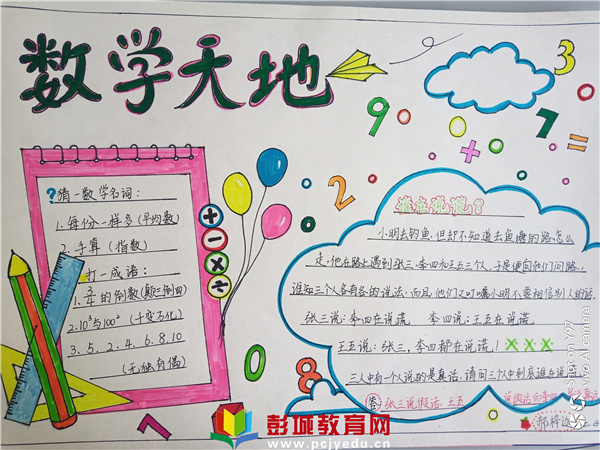 数学天地
?猜一数学名词:
1.每份一样多(平均数)
2.手算(指数)
打一成语:
1. 3/4的倒数(颠三倒四)
2.10³与100²(千变万化)
3.5.2.4.6.8.10
(无独有偶)
+
−
×
÷
3
9
7
=
+
2
0
8
7
谁在说谎?
小明去钓鱼,但却不知道去鱼塘的路怎么
走,他在路上遇到张三、李四和王五三个人,于是便向他们问路,
谁知三个人各有各的说法,而且,他们又叮嘱小明不要相信别人的话.
张三说:李四在说谎 李四说:王五在说谎
王五说:张三、李四都在说谎! ×××
三人中有一个人说的是真话,请问三个人中到底谁在说
答 张三说假话 王五 说假话 李四
彭城教育网
www.pcjyedu.cn
Shot on Y97
vivo AI camera